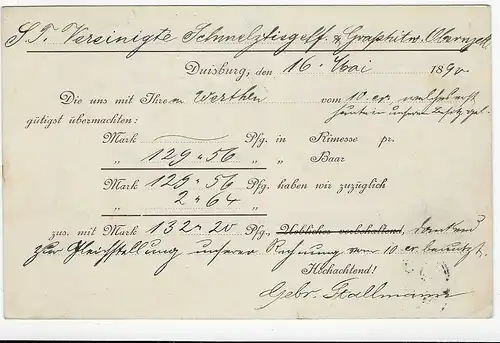 S. T. Vereinigte Schmelztiegelf. & Graphitw. Obernzell
Duisburg, den 16. Mai 1890
Die uns mit Ihrem Werthen vom 10 cr.
gütigst übermachten:
Mark Pfg. in Rimesse pr.
„ 129 „ 56 „ „ Baar
Mark 129 „ 56 Pfg. haben wir zuzüglich
„ 2 „ 64
zus. mit Mark 132 „ 20 Pfg., Uebliches vorbehaltend, dankend
zur Gleichstellung unserer Rechnung vom 10 cr. benutzt.
Hochachtend!
Gebr. Stallmann